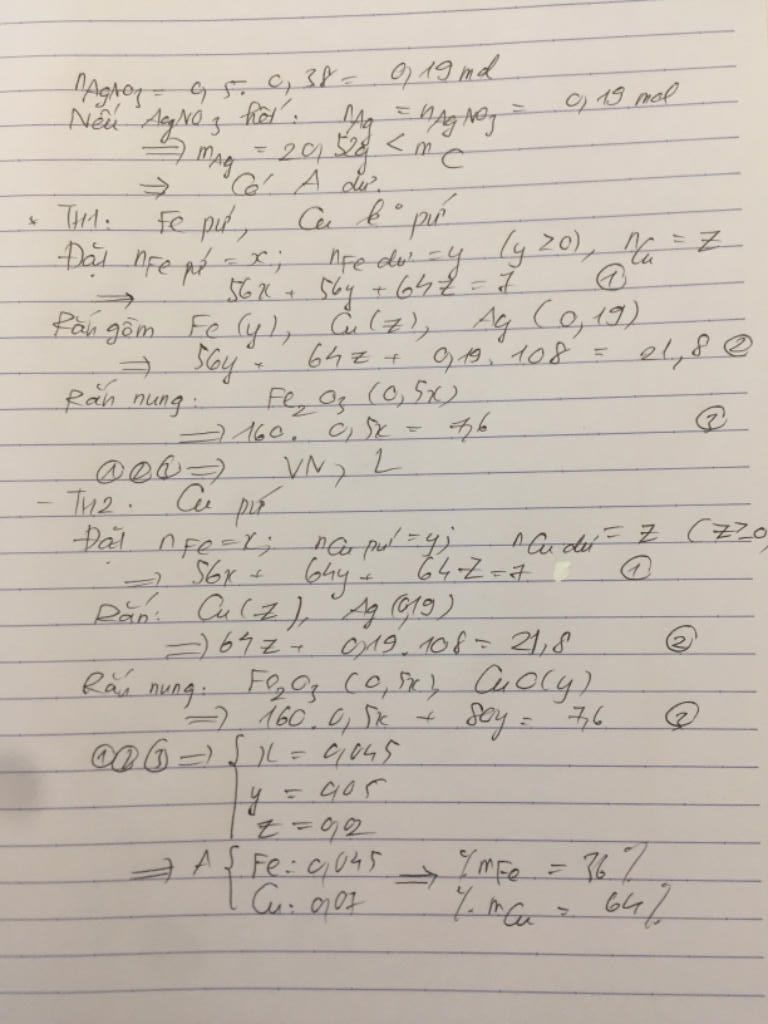 nAgNO3 = 0,5. 0,38 = 0,19 mol
Nếu AgNO3 hết: nAg = nAgNO3 = 0,19 mol
=> mAg = 20,52g < mC
=> Có A dư.
* TH1: Fe pứ, Cu k° pứ
Đặt nFe pứ = x; nFe dư = y (y≥0), nCu = z
=> 56x + 56y + 64z = 7 ①
Rắn gồm Fe(y), Cu(z), Ag(0,19)
=> 56y + 64z + 0,19.108 = 21,8 ②
Rắn nung: Fe2O3 (0,5x)
=> 160. 0,5x = 7,6 ③
①②③ => VN, L
- TH2. Cu pứ
Đặt nFe = x; nCu pứ = y; nCu dư = z (z≥0
=> 56x + 64y + 64z = 7 ①
Rắn: Cu(z), Ag(0,19)
=> 64z + 0,19.108 = 21,8 ②
Rắn nung: Fe2O3 (0,5x), CuO(y)
=> 160.0,5x + 80y = 7,6 ③
①②③ => { x = 0,045
y = 0,05
z = 0,02
=> A { Fe: 0,045 => %mFe = 36%
Cu: 0,07 %mCu = 64%